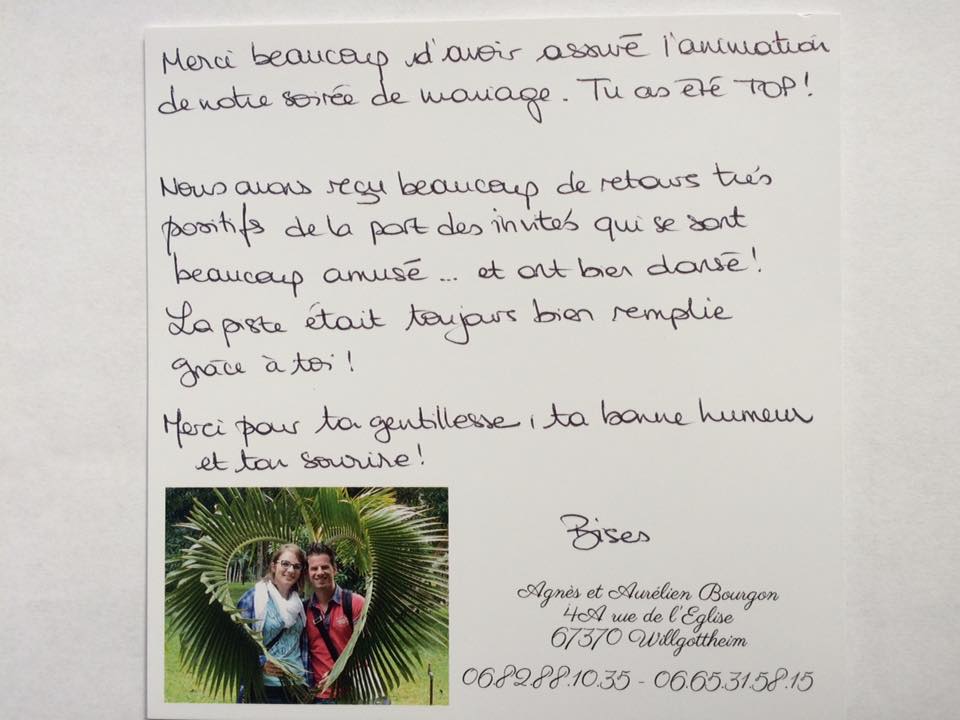 Merci beaucoup d'avoir assuré l'animation
de notre soirée de mariage. Tu as été TOP!
Nous avons reçu beaucoup de retours très
positifs de la part des invités qui se sont
beaucoup amusé ... et ont bien dansé!
La piste était toujours bien remplie
grâce à toi!
Merci pour ta gentillesse, ta bonne humeur
et ton sourire!
Bises
Agnès et Aurélien Bourgon
4A rue de l'Eglise
67370 Willgottheim
06.82.88.10.35 - 06.65.31.58.15